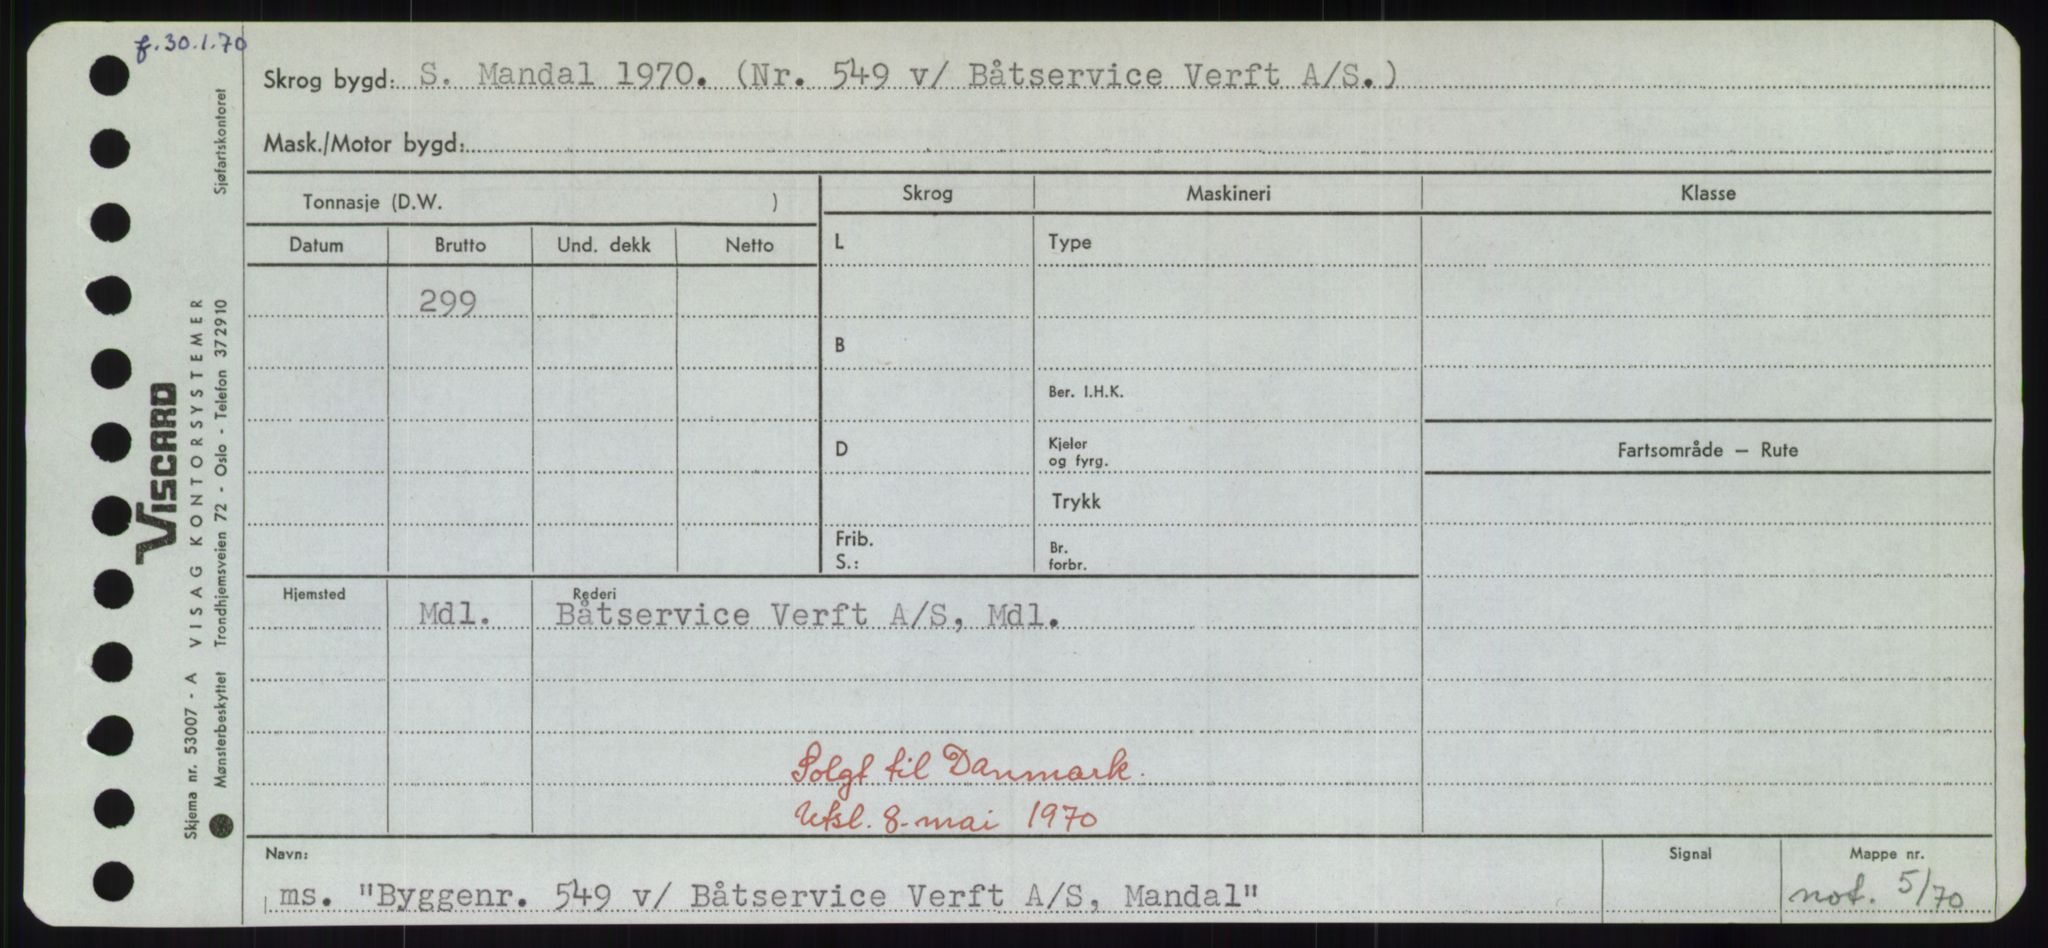 f. 30.1.70
Skrog bygd: S. Mandal 1970. (Nr. 549 v/ Båtservice Verft A/S.)
Mask./Motor bygd:
Tonnasje (D.W. )
Skrog
Maskineri
Klasse
Datum
Brutto
Und. dekk
Netto
L
Type
299
B
Ber. I.H.K.
D
Kjeler
og fyrg.
Fartsområde — Rute
Trykk
Frib.
S.:
Br.
forbr.
Hjemsted
Rederi
Mdl.
Båtservice Verft A/S, Mdl.
Solgt til Danmark.
Utsl. 8. mai 1970
Navn:
Signal
Mappe nr.
ms. "Byggenr. 549 v/ Båtservice Verft A/S, Mandal"
not. 5/70
VISCARD
Skjema nr. 53007 - A VISAG KONTORSYSTEMER
Mønsterbeskyttet Trondhjemsveien 72 - Oslo - Telefon 372910 Sjøfartskontoret